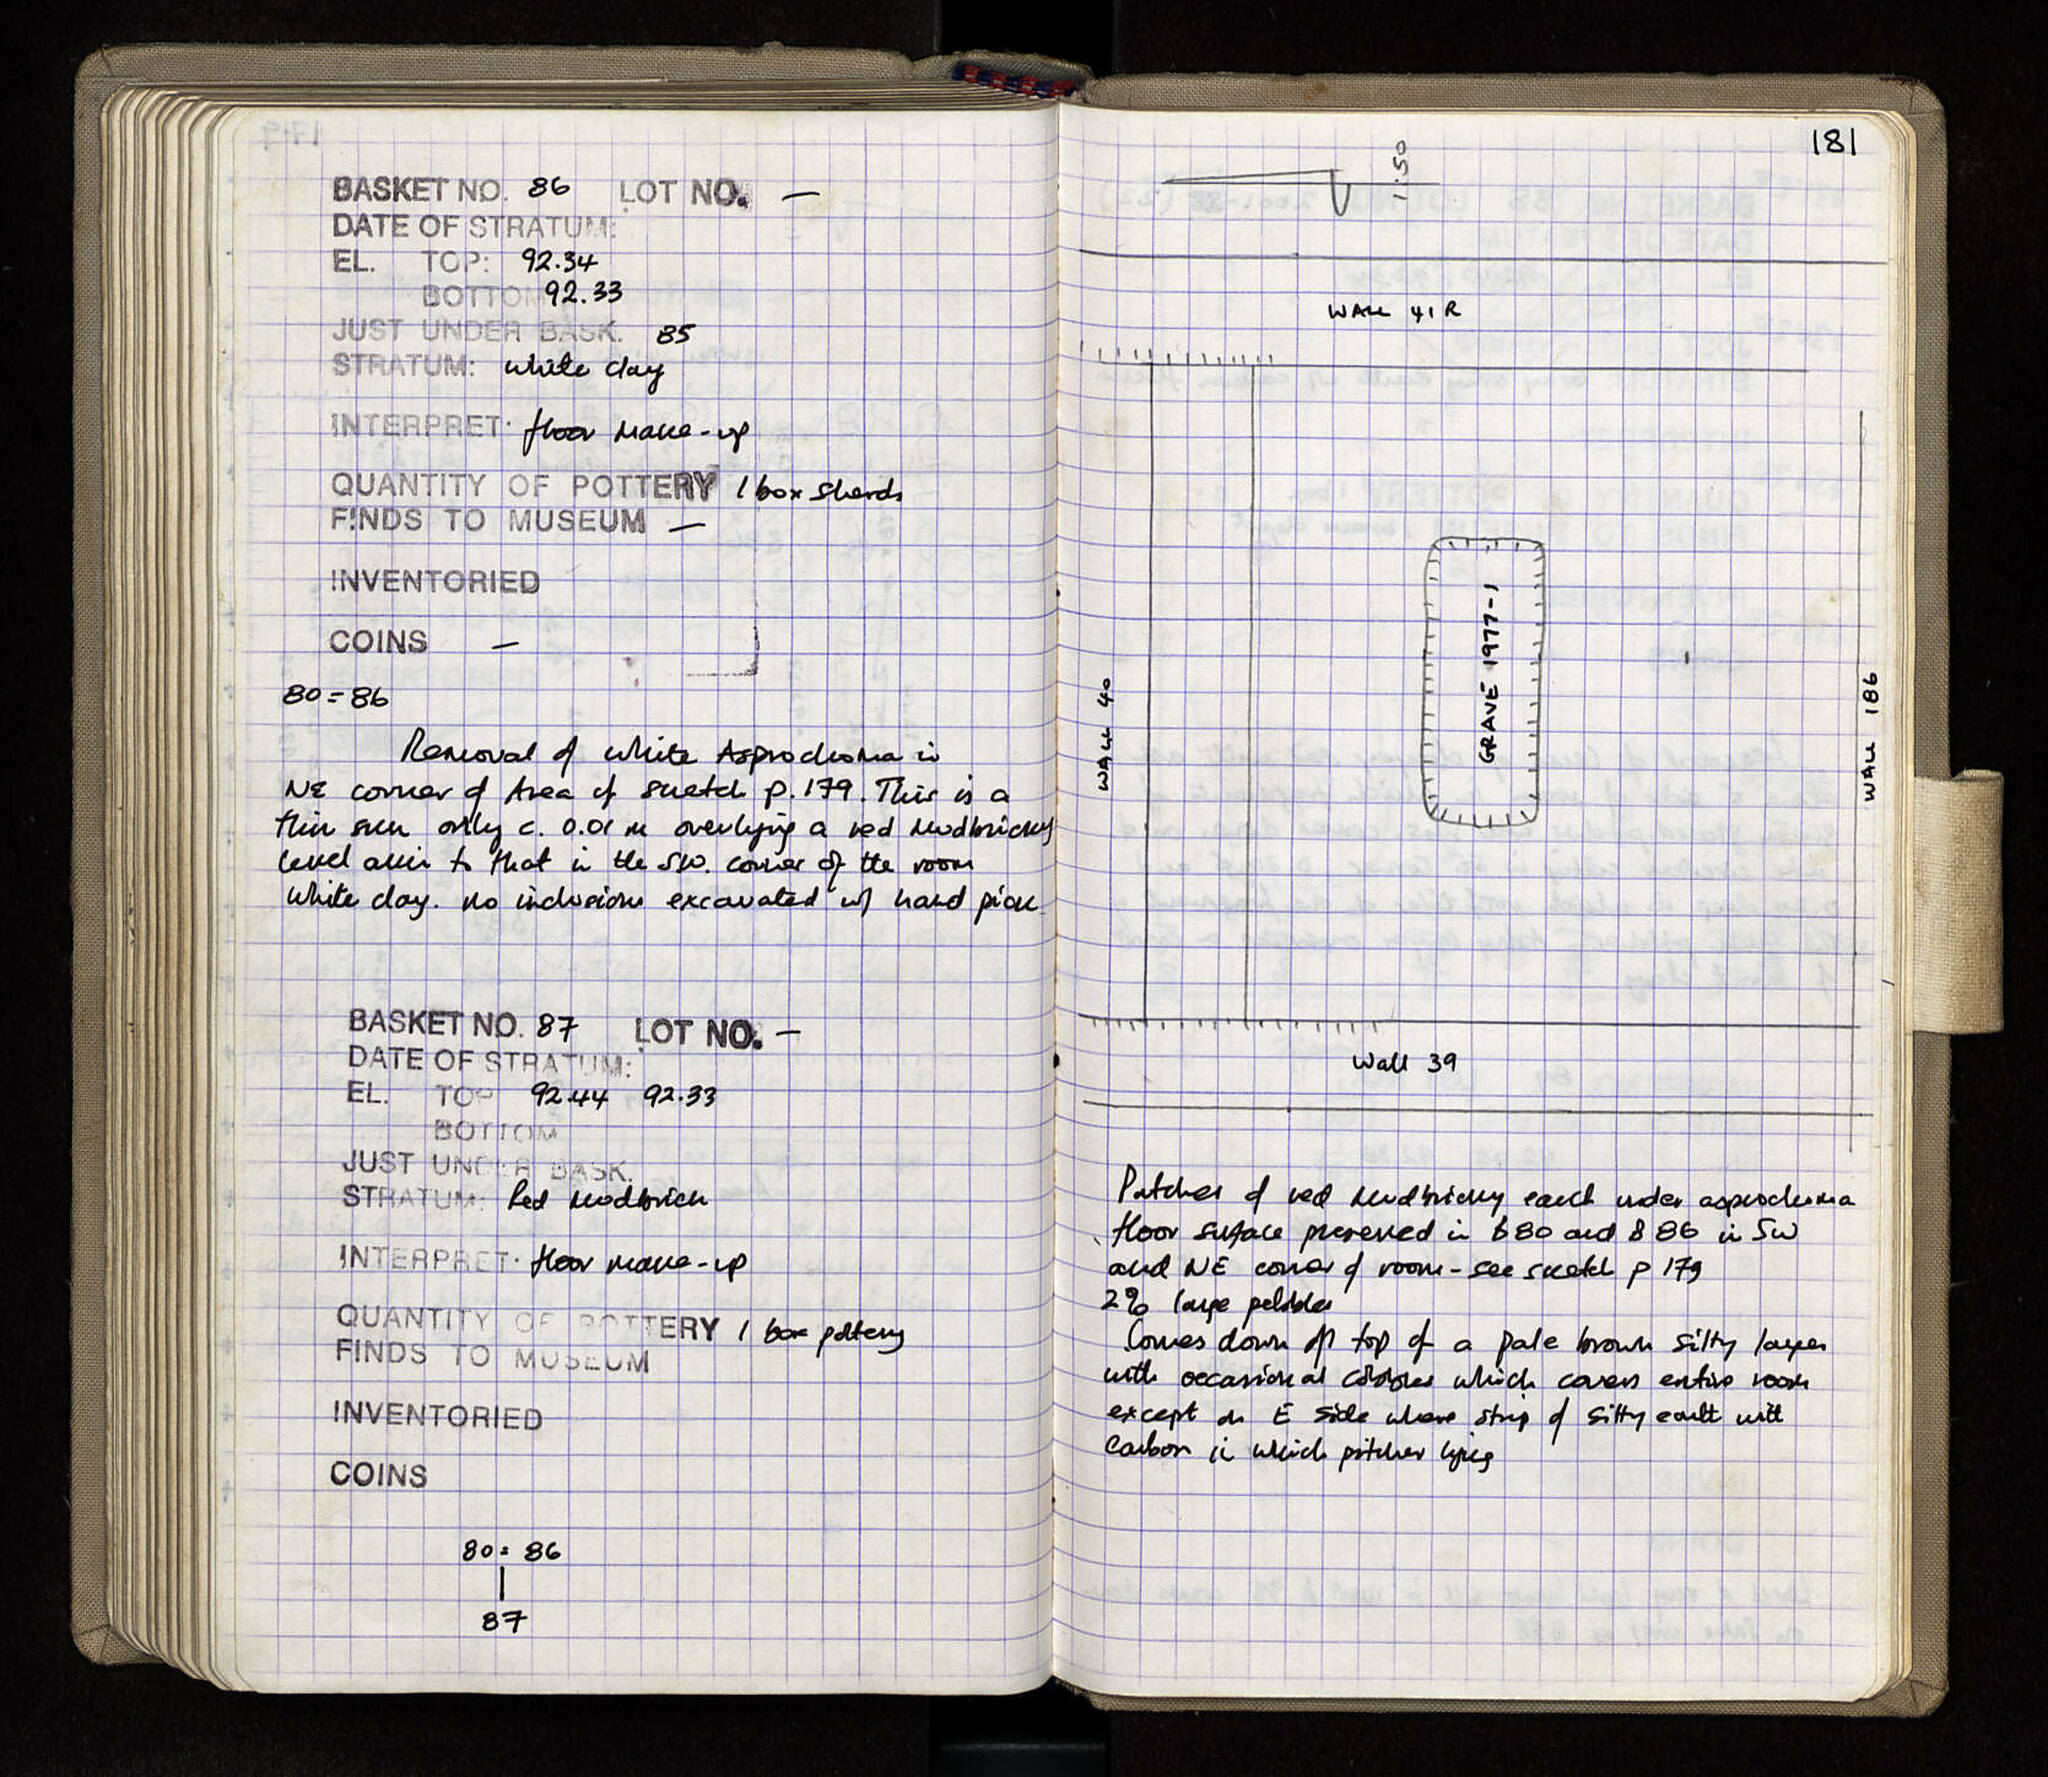 BASKET NO. 86 LOT NO. —
DATE OF STRATUM:
EL. TOP: 92.34
BOTTOM 92.33
JUST UNDER BASK. 85
STRATUM: white clay
INTERPRET: floor make-up
QUANTITY OF POTTERY 1 box sherds
FINDS TO MUSEUM —
INVENTORIED
COINS —
80 = 86
Removal of white Asprochoma in
NE corner of Area of sketch p. 179. This is a
thin skin only c. 0.01 m overlying a red mudbricky
level akin to that in the SW. corner of the room
White clay. no inclusions excavated w/ hand pick
BASKET NO. 87 LOT NO. —
DATE OF STRATUM:
EL. TOP 92.44 92.33
BOTTOM
JUST UNDER BASK.
STRATUM: Red mudbrick
INTERPRET: floor make-up
QUANTITY OF POTTERY 1 box pottery
FINDS TO MUSEUM
INVENTORIED
COINS
80 = 86
87
181
1:50
WALL 41 R
WALL 40
GRAVE 1977-1
WALL 186
Wall 39
Patches of red mudbricky earth under asprochoma
floor surface preserved in B80 and B86 in SW
and NE corner of room - see sketch p 179
2% large pebbles
Comes down on top of a pale brown silty layer
with occasional cobbles which covers entire room
except on E side where strip of silty earth with
carbon in which pitcher lying